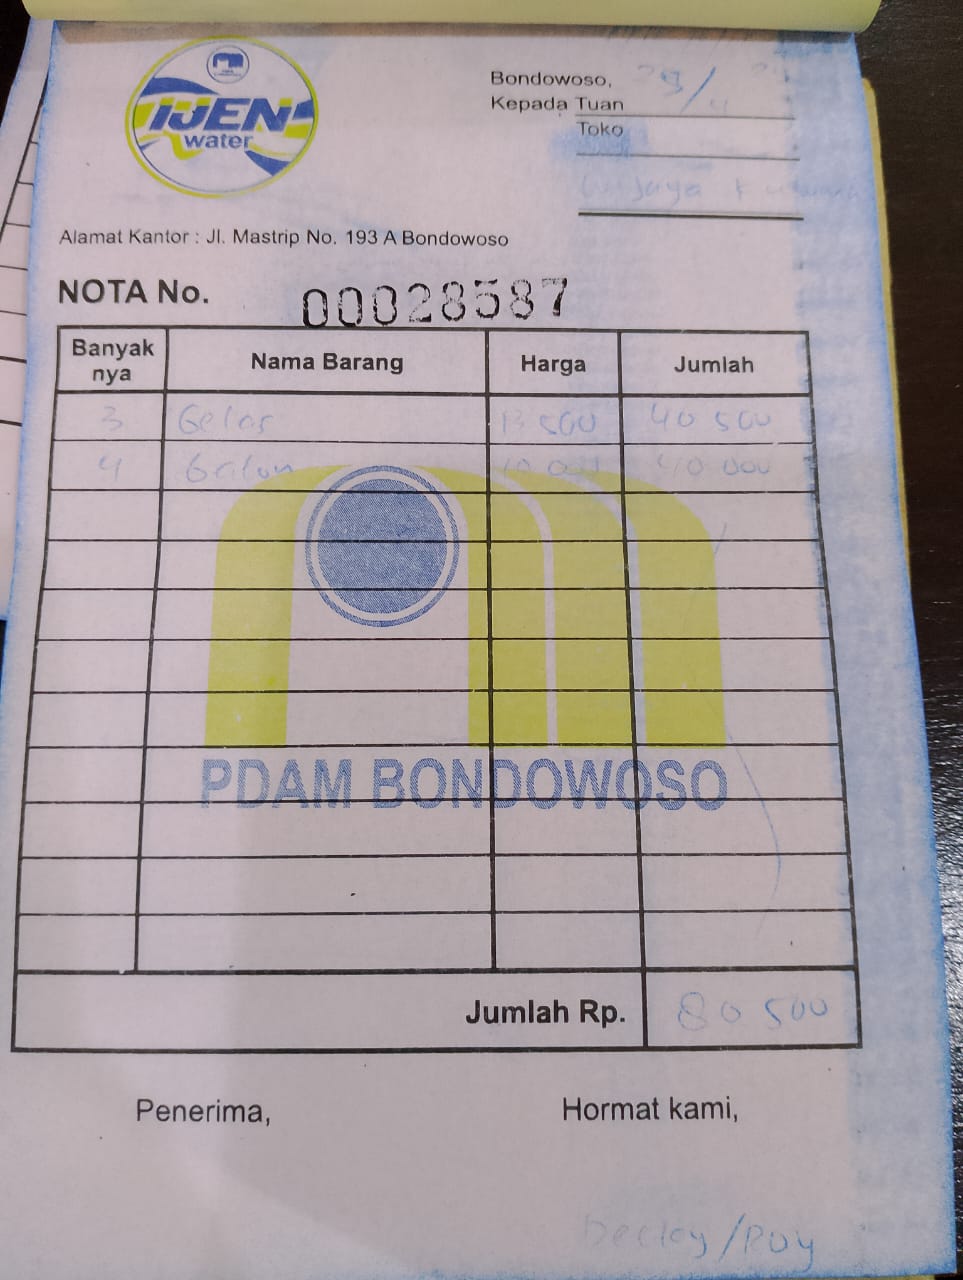 IJEN
water
Bondowoso, 29/4
Kepada Tuan
Toko
Alamat Kantor : Jl. Mastrip No. 193 A Bondowoso
NOTA No. 00028587
Banyak nya Nama Barang Harga Jumlah
3 Gelas 13 500 40 500
4 Galon 10 000 40 000
PDAM BONDOWOSO
Jumlah Rp. 80 500
Penerima, Hormat kami,